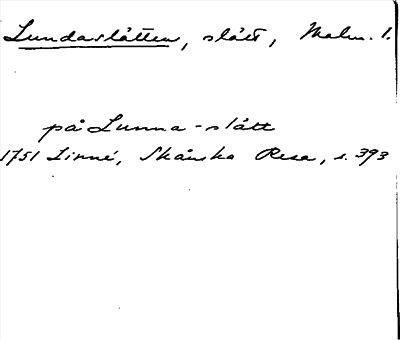 Lundaslätten, slätt, Malm. l.
på Lunna-slätt
1751 Linné, Skånska Resa, s. 393